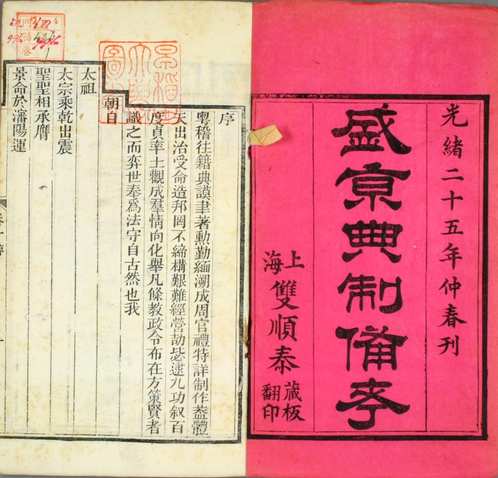 光緒二十五年仲春刊
盛京典制備考
上海
雙順泰
藏板
翻印
序
粵稽往籍典謨聿著勳勤緬溯成周官禮特詳制作蓋體
天出治受命造邦罔不締構艱難經營劼毖逮九功敘百
度貞率土觀成羣情向化舉凡條教政令布在方策賢者
識之而弈世奉為法守自古然也我
朝自
太祖
太宗乘乾出震
聖聖相承膺
景命於瀋陽運